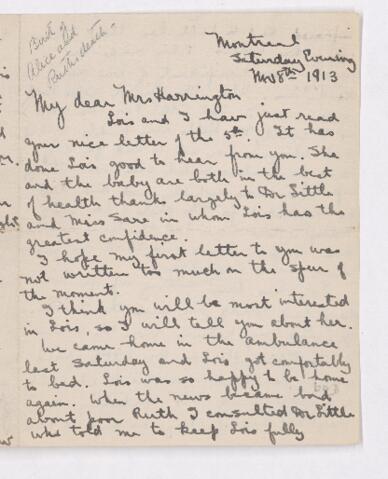 Birth of
Alice and
Ruth's death -
Montreal
Saturday Evening
Nov 8th 1913
My dear Mrs Harrington
Lois and I have just read
your nice letter of the 5th. It has
done Lois good to hear from you. She
and the baby are both in the best
of health thanks largely to Dr Little
and Miss Sare in whom Lois has the
greatest confidence.
I hope my first letter to you was
not written too much on the spur of
the moment.
I think you will be most interested
in Lois, so I will tell you about her.
We came home in the ambulance
last Saturday and Lois got comfortably
to bed. Lois was so happy to be home
again. When the news became bad
about poor Ruth I consulted Dr Little
who told me to keep Lois fully